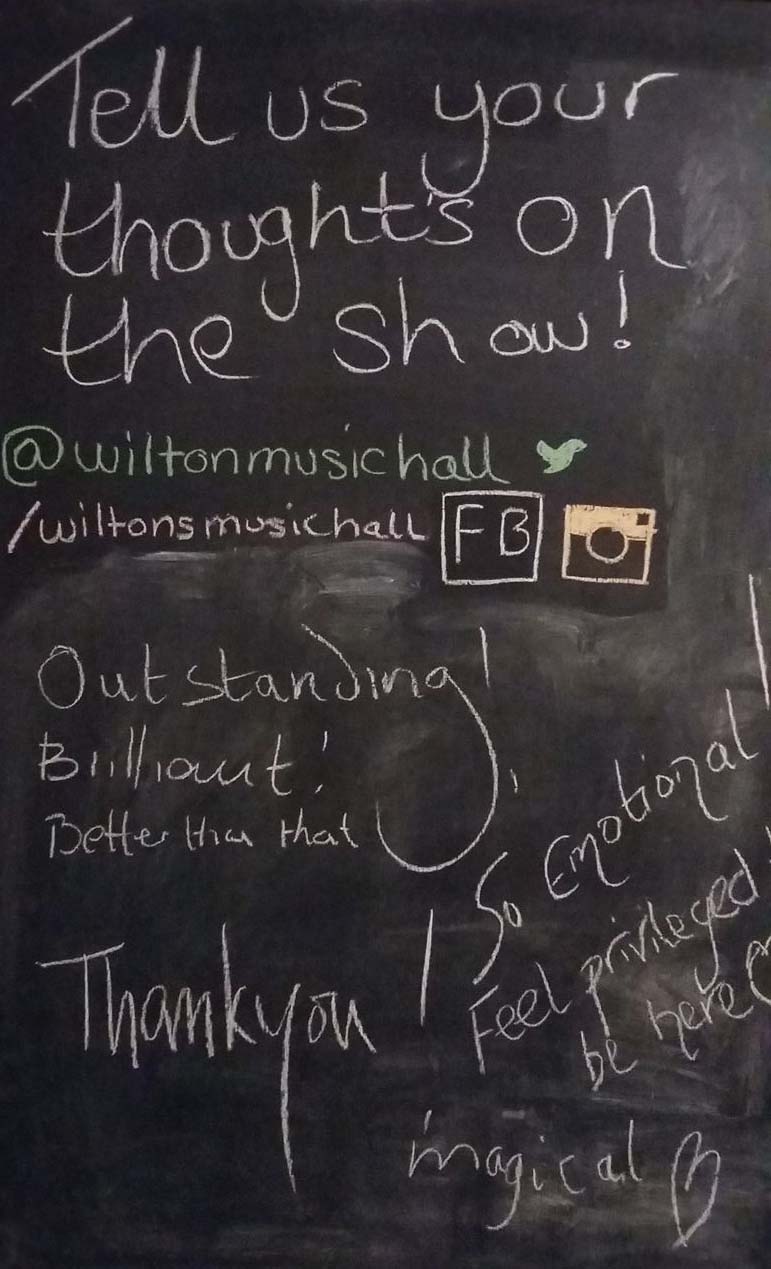 Tell us your
thoughts on
the show!
@wiltonmusichall
/wiltonsmusichall FB
Outstanding!
Brilliant!
Better than that
So Emotional
Feel privileged
be here
Thankyou!
magical